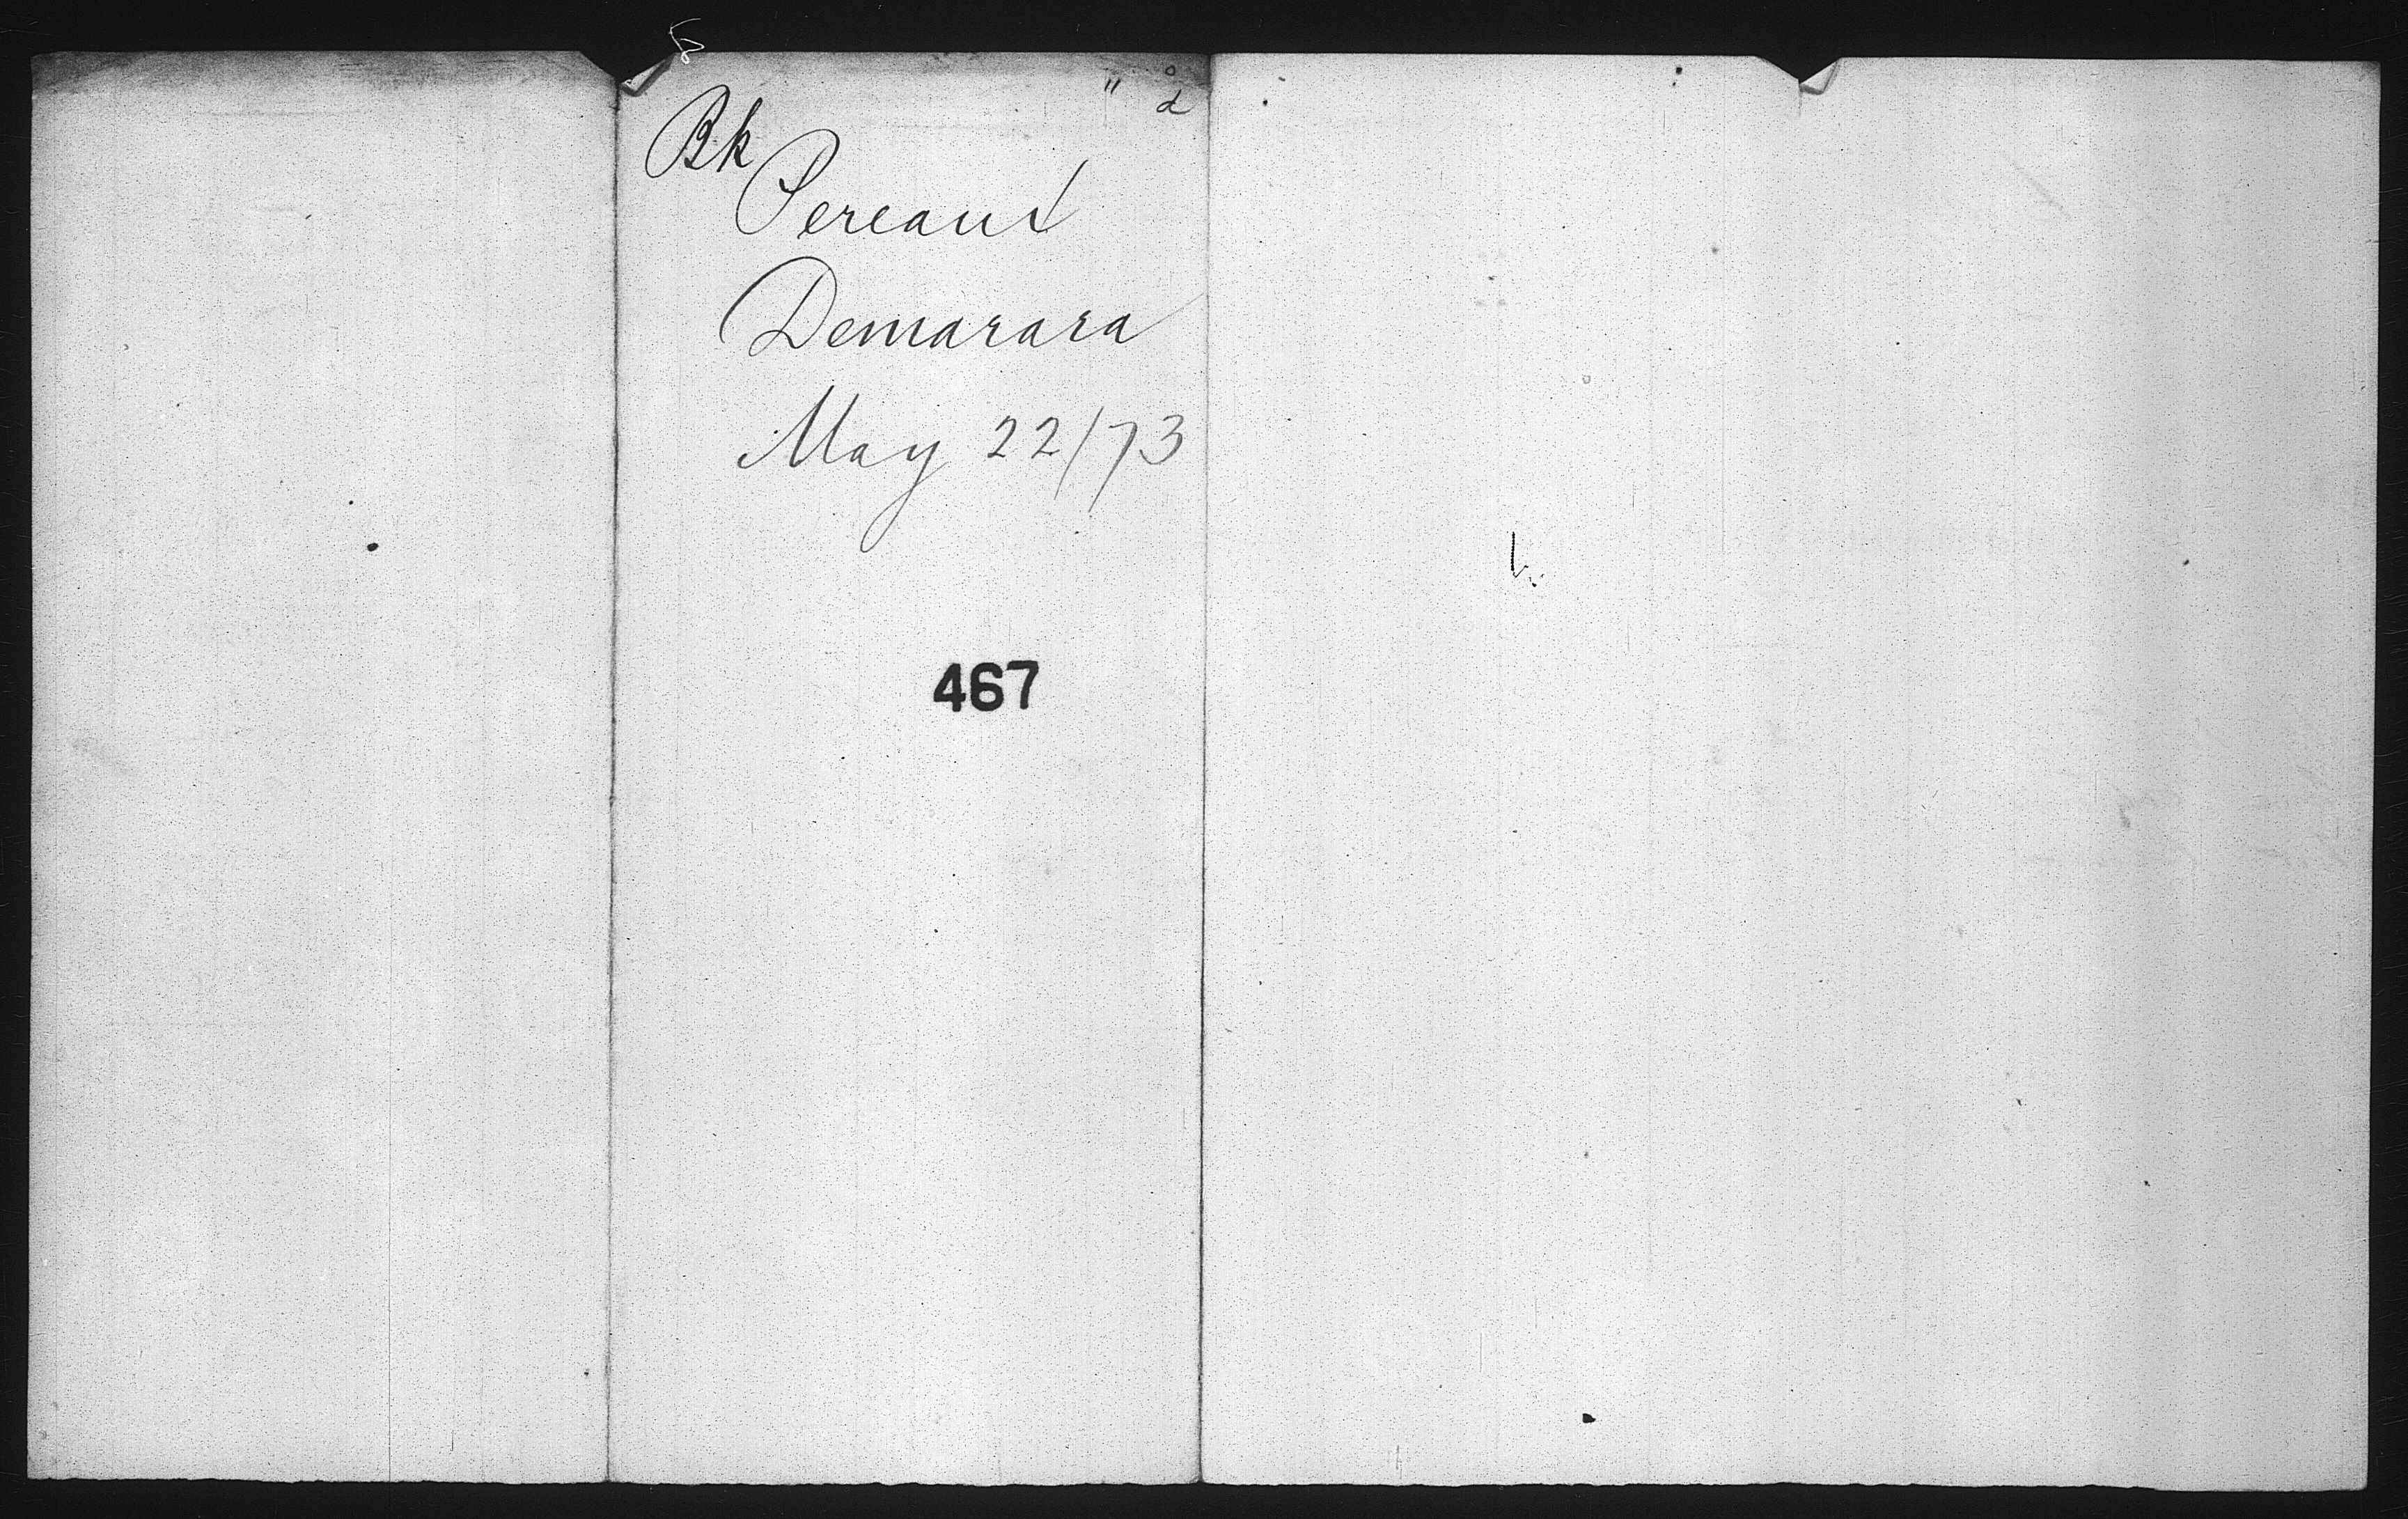 Bk
Pereaut
Demarara
May 22/73
467